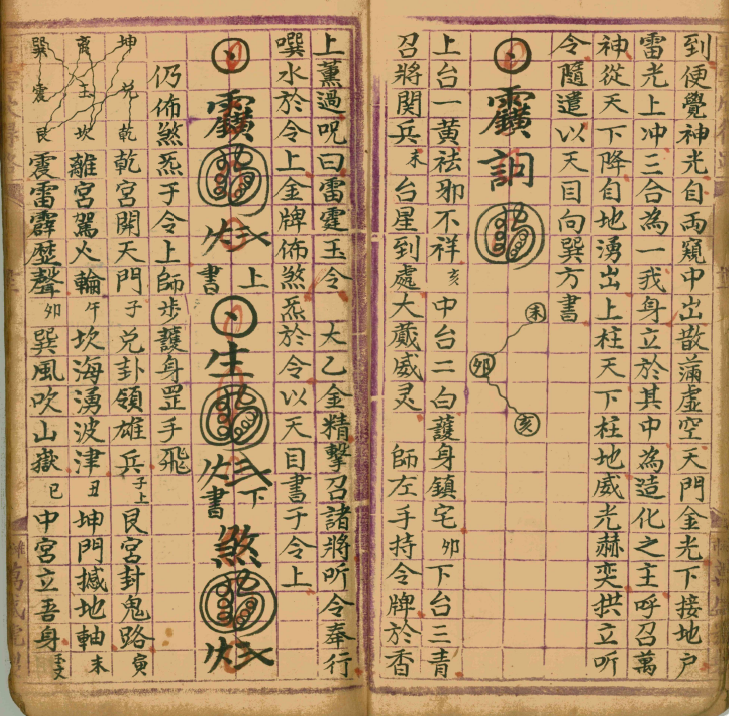 到便覺神光自兩窺中出散滿虛空天門金光下接地戶
雷光上冲三合為一我身立於其中為造化之主呼召萬
神從天下降自地湧出上柱天下柱地威光赫奕拱立听
令隨遣以天目向巽方書
未
卯
亥
上台一黃祛邪不祥亥中台二白護身鎮宅卯下台三青
召將関兵未台星到處大蔵威灵 師左手持令牌於香
上薰過呪曰雷霆玉令 大乙金精擊召諸將听令奉行
噀水於令上金牌佈煞炁於令以天目書于令上
上書
生
下書
煞
仍佈煞炁于令上師步護身罡手飛
坤 兌 乾
離 王 坎
巽 震 艮
乾宮開天門子兌卦領雄兵子上艮宮封鬼路寅
離宮駕火輪午坎海湧波津丑坤門撼地軸未
震雷霹歷聲卯巽風吹山嶽巳中宮立吾身